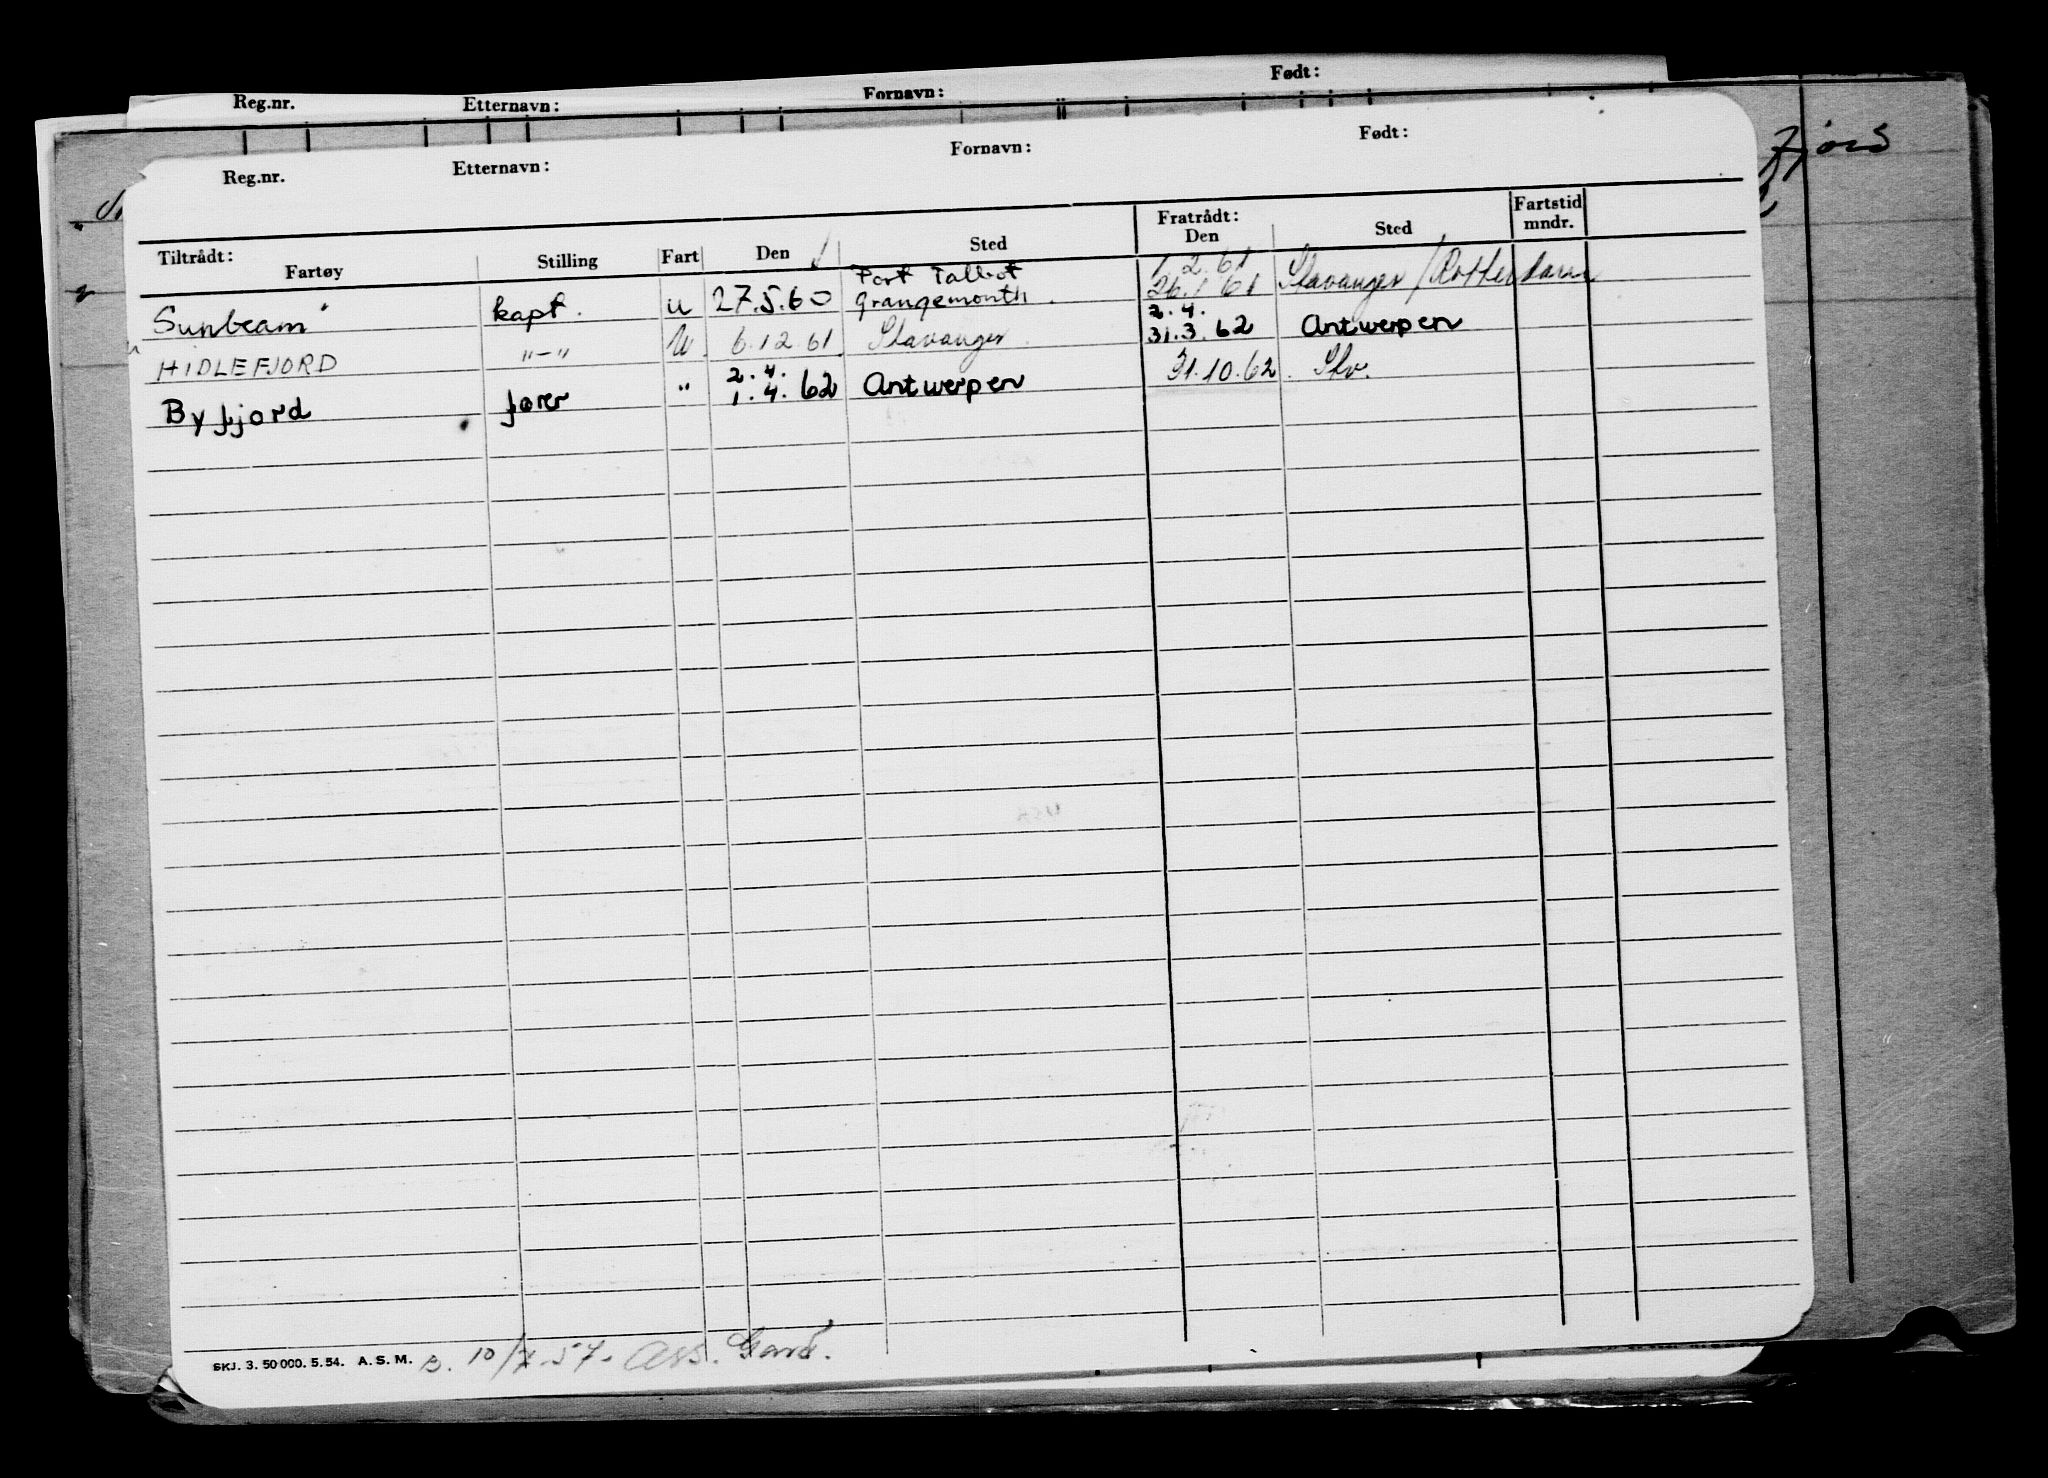 Reg.nr. Etternavn: Fornavn: Født:
fjord
Reg.nr. Etternavn: Fornavn: Født:
Tiltrådt: Fratrådt: Fartstid
Fartøy Stilling Fart Den Sted Den Sted mndr.
Port Talbot 1.2.61
Sunbeam kapt. u 27.5.60 Grangemonth. 26.1.61 Stavanger / Rotterdam
2.4.
HIDLEFJORD "-" U. 6.12.61. Stavanger. 31.3.62 Antwerpen
2.4.
Byfjord fører " 1.4.62 Antwerpen 31.10.62. Stv.
SKJ. 3. 50 000. 5. 54. A. S. M.